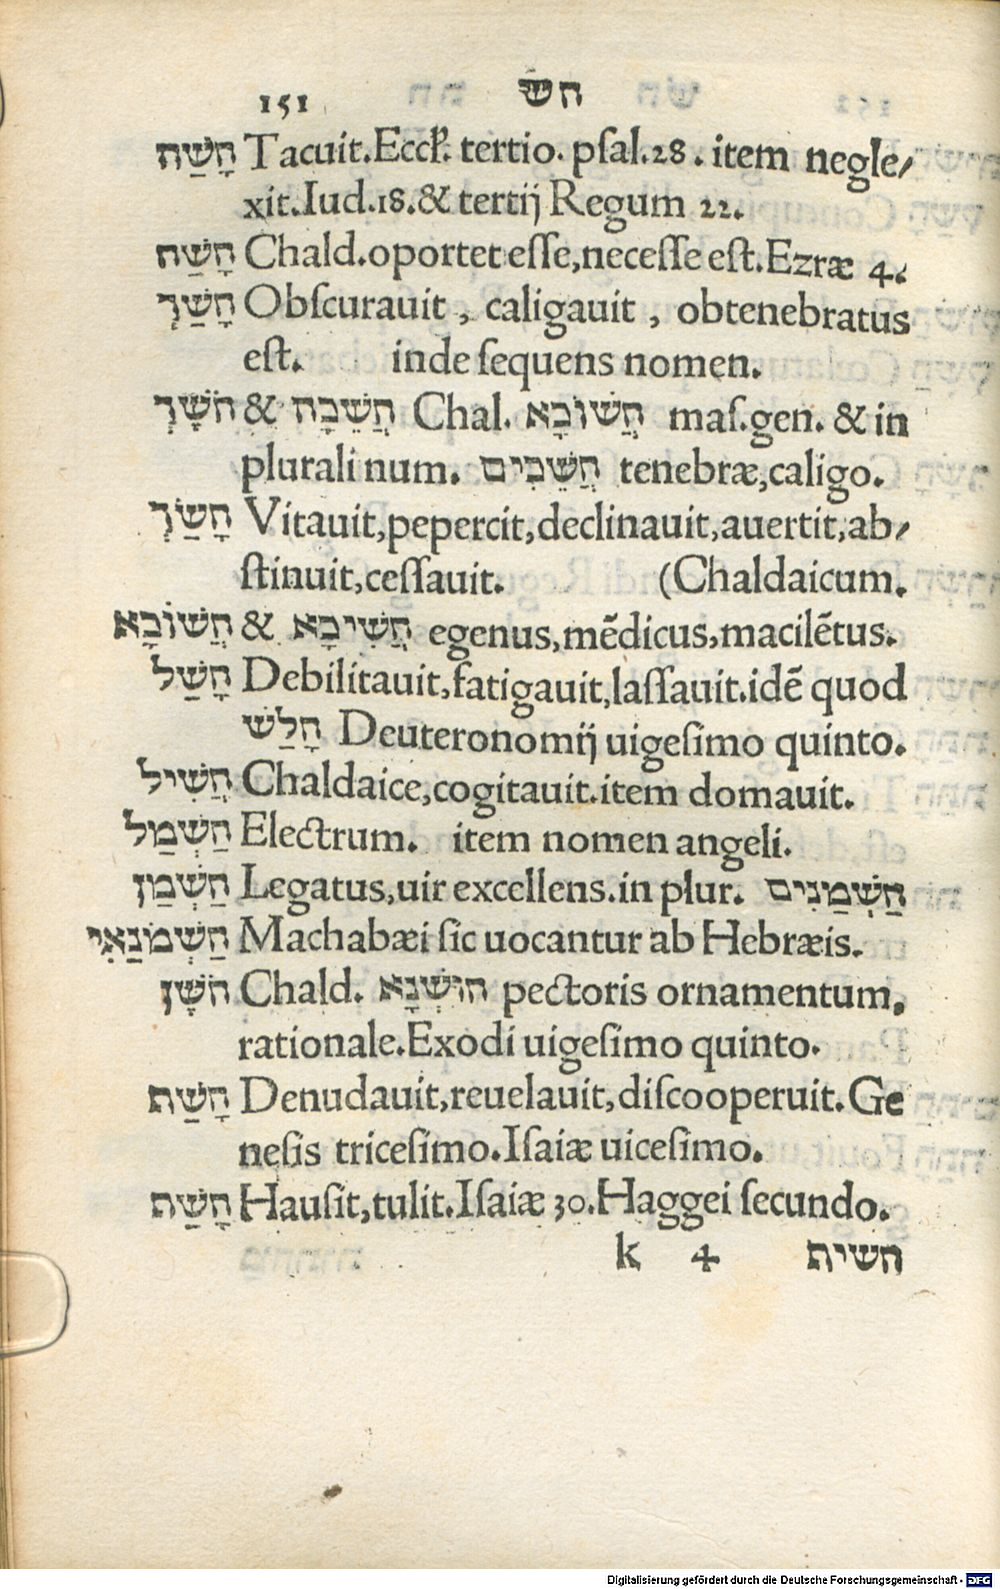 151 חש
חָשַׁה Tacuit. Eccl. tertio. psal. 28. item negle/
xit. Iud. 18. & tertij Regum 22.
חָשַׁח Chald. oportet esse, necesse est. Ezræ 4.
חָשַׁךְ Obscurauit, caligauit, obtenebratus
est. inde sequens nomen.
חֹשֶׁךְ & חֲשֵׁכָה Chal. חֲשׁוֹכָא mas. gen. & in
plurali num. חֲשֵׁכִים tenebræ, caligo.
חָשַׂךְ Vitauit, pepercit, declinauit, auertit, ab/
stinuit, cessauit. (Chaldaicum.
חֲשׁוֹכָא & חֲשִׁיכָא egenus, mēdicus, macilētus.
חָשַׁל Debilitauit, fatigauit, lassauit. idē quod
חָלַשׁ Deuteronomij uigesimo quinto.
חֲשִׁיל Chaldaice, cogitauit. item domauit.
חַשְׁמַל Electrum. item nomen angeli.
חַשְׁמַן Legatus, uir excellens. in plur. חַשְׁמַנִּים
חַשְׁמֹנַאִי Machabæi sic uocantur ab Hebræis.
חֹשֶׁן Chald. חוּשְׁנָא pectoris ornamentum,
rationale. Exodi uigesimo quinto.
חָשַׂף Denudauit, reuelauit, discooperuit. Ge
nesis tricesimo. Isaiæ uicesimo.
חָשַׂף Hausit, tulit. Isaiæ 30. Haggei secundo.
k 4 חשית
Digitalisierung gefördert durch die Deutsche Forschungsgemeinschaft - DFG